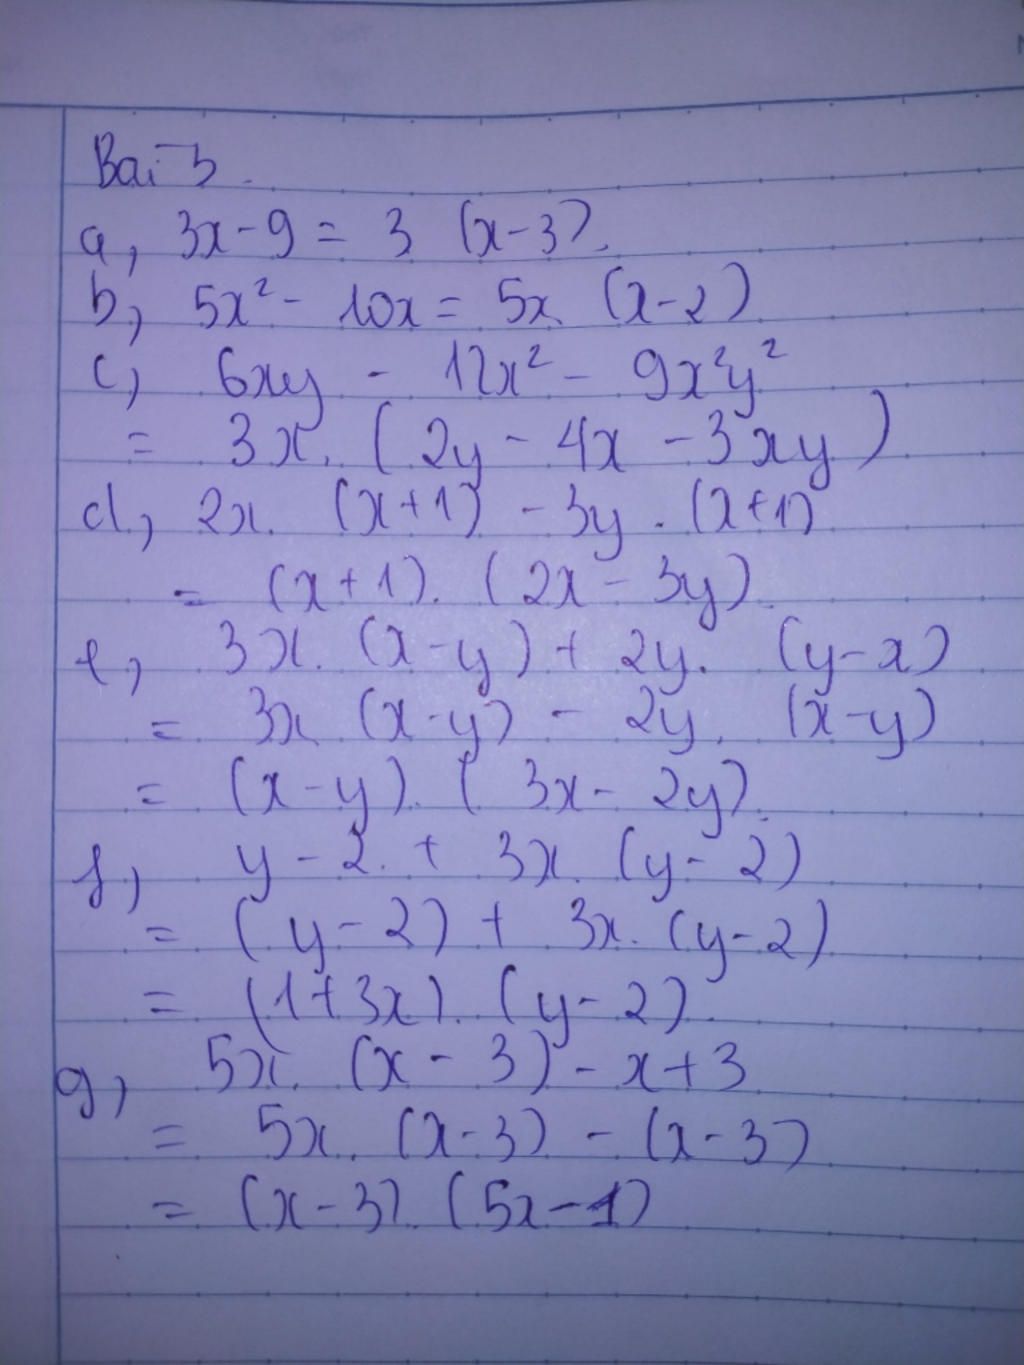 Bài 3.
a, 3x - 9 = 3 (x - 3).
b, 5x² - 10x = 5x. (x - 2)
c, 6xy - 12x² - 9x²y²
= 3x. (2y - 4x - 3xy)
d, 2x. (x+1) - 3y. (x+1)
= (x+1). (2x - 3y).
e, 3x. (x-y) + 2y. (y-x)
= 3x. (x-y) - 2y. (x-y)
= (x-y). (3x - 2y).
f, y - 2. + 3x. (y - 2)
= (y-2) + 3x. (y-2)
= (1+3x). (y-2).
g, 5x. (x - 3) - x+3
= 5x. (x-3) - (x-3)
= (x-3). (5x-1)